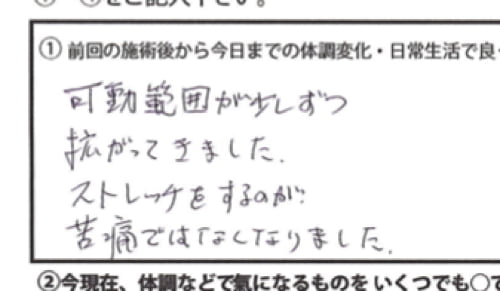 をご記入下さい。
① 前回の施術後から今日までの体調変化・日常生活で良
可動範囲が少しずつ
拡がってきました.
ストレッチをするのが
苦痛ではなくなりました.
②今現在、体調などで氣になるものを いくつでも○で